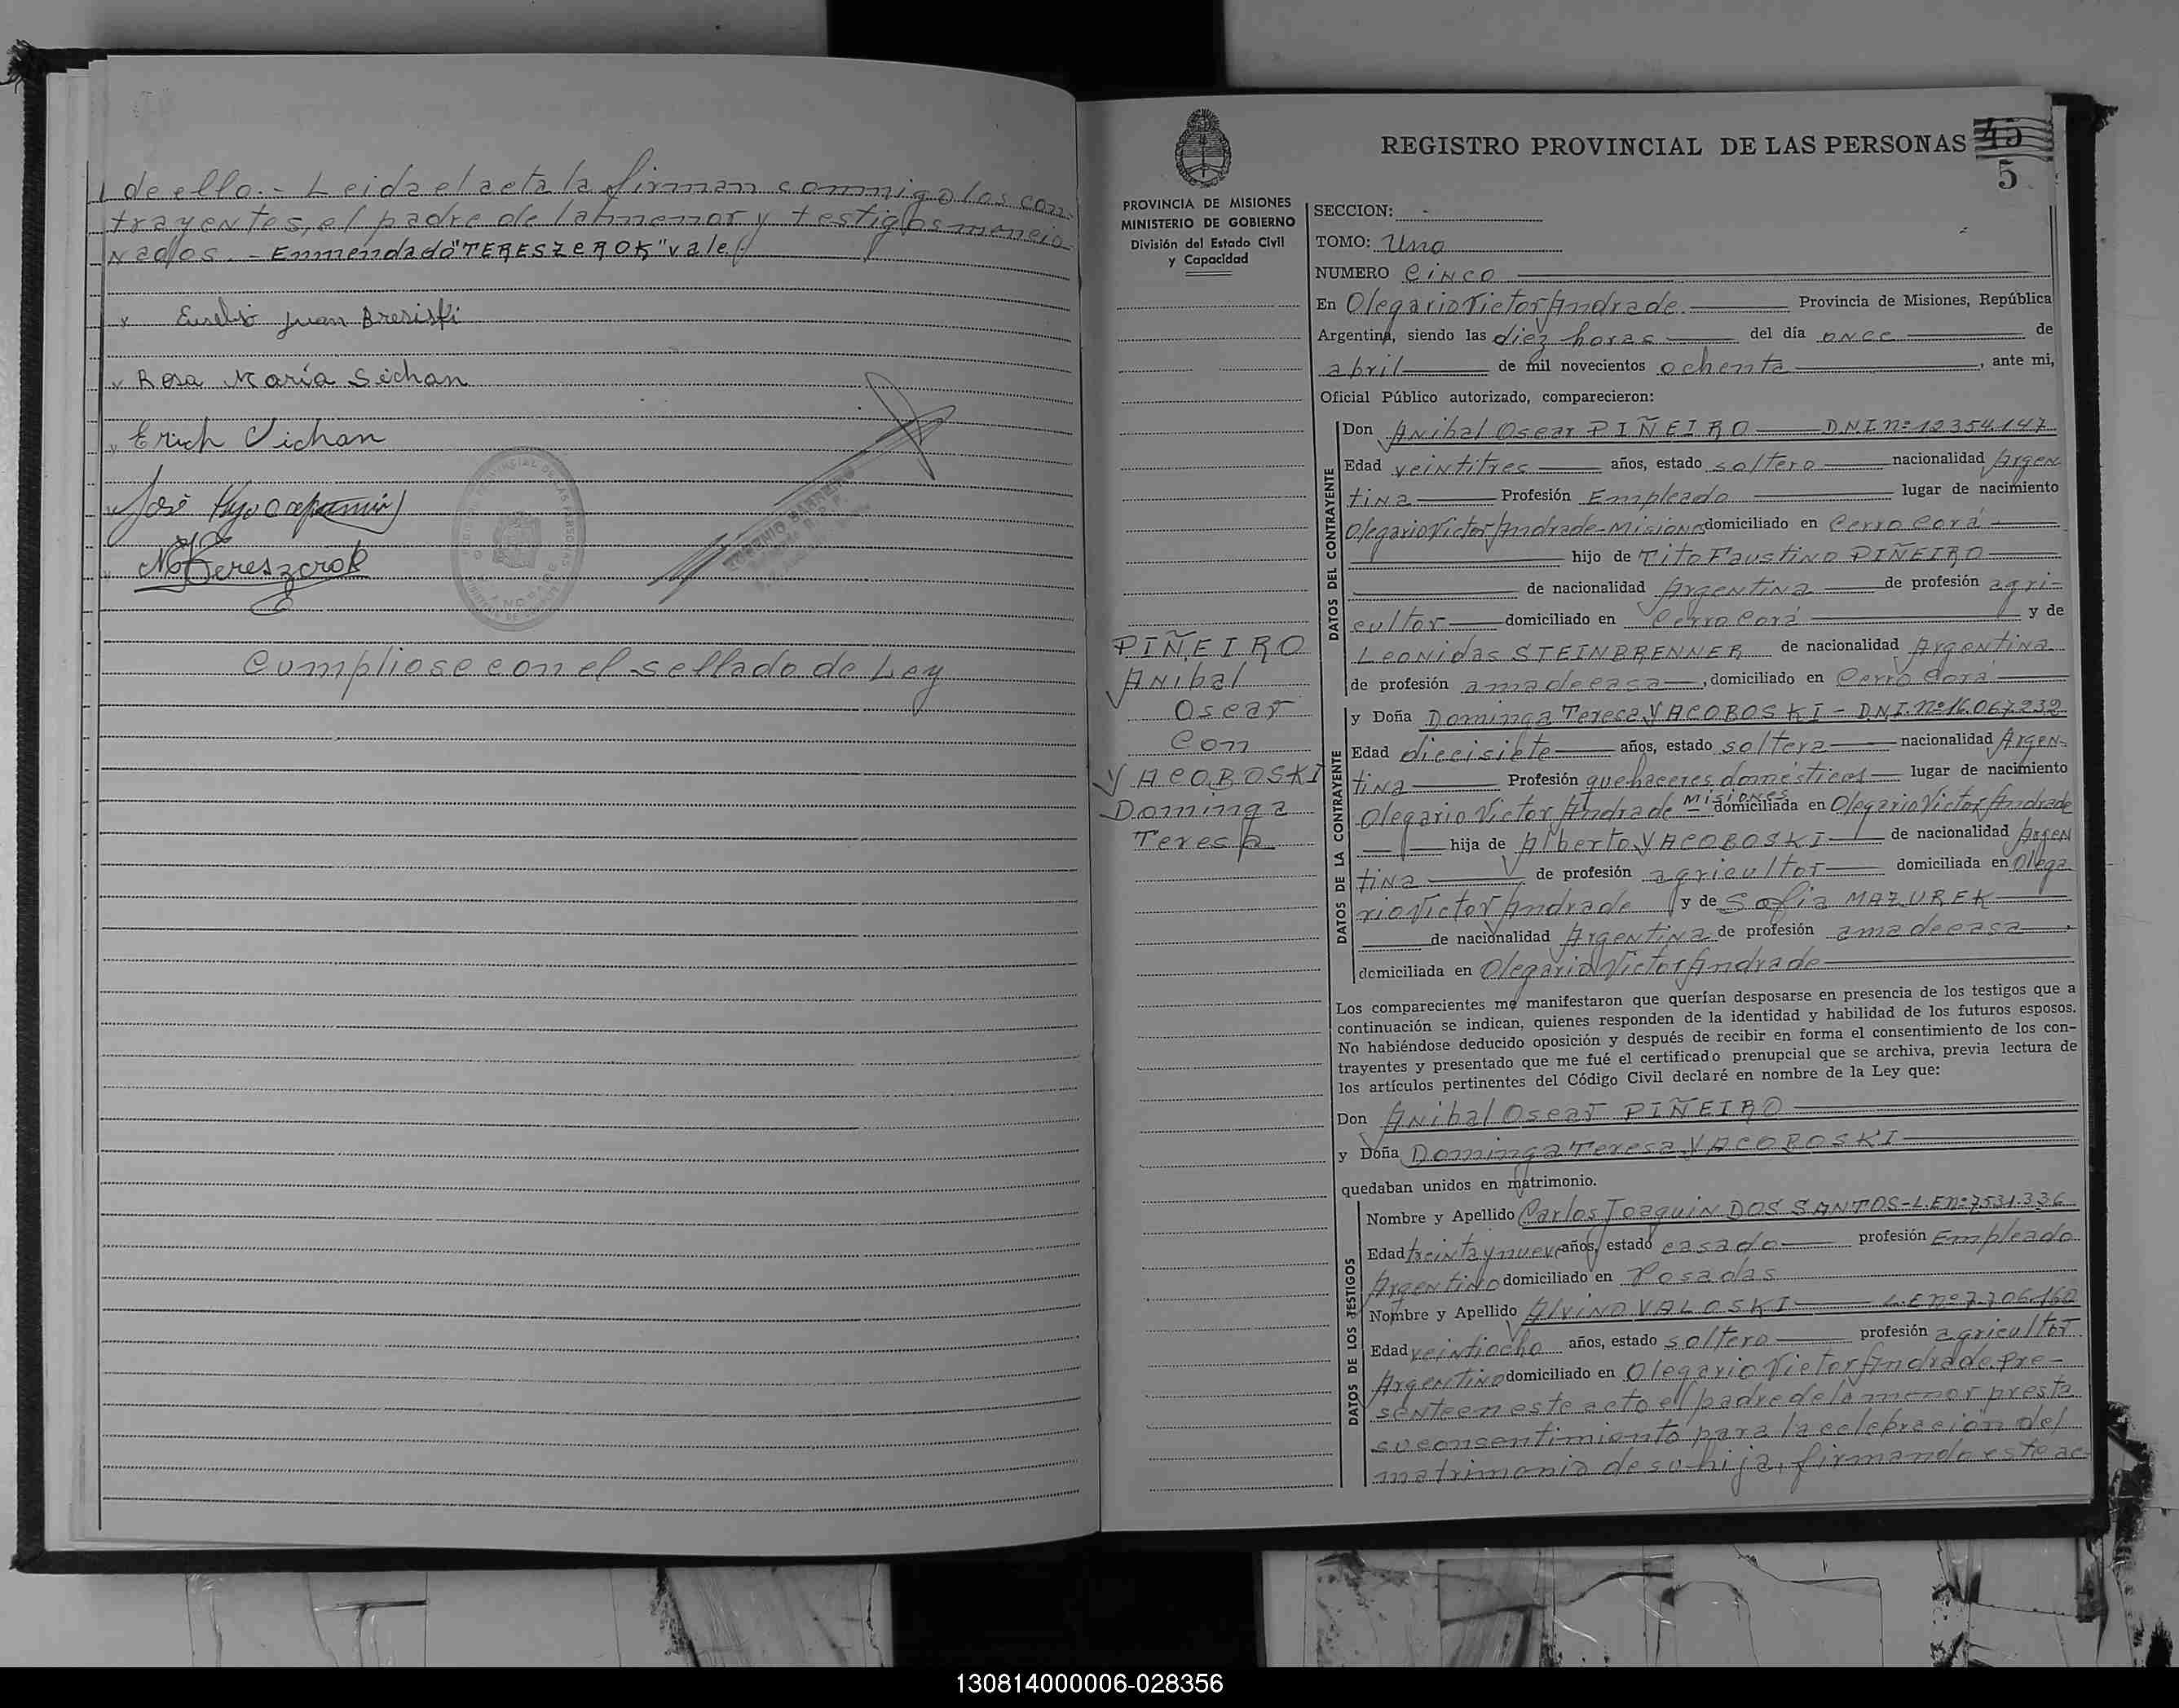 de ello.- Leida el acta la firman conmigo los con-
trayentes, el padre de la menor y testigos mencio-
nados.- Enmendado "TERESZEROK" vale
Eusebio Juan Bresiski
Rosa María Sichan
Erich Sichan
José
Tereszerok
Cumpliose con el sellado de Ley
REGISTRO PROVINCIAL DE LAS PERSONAS 45
5
PROVINCIA DE MISIONES
MINISTERIO DE GOBIERNO
División del Estado Civil
y Capacidad
PIÑEIRO
Anibal
Oscar
Con
YACOBOSKI
Dominga
Teresa
SECCION: -
TOMO: Uno
NUMERO Cinco
En Olegario Victor Andrade. Provincia de Misiones, República
Argentina, siendo las diez horas del día once de
abril de mil novecientos ochenta, ante mi,
Oficial Público autorizado, comparecieron:
DATOS DEL CONTRAYENTE
Don Anibal Oscar PIÑEIRO D.N.I. nº 12354.147
Edad veintitres años, estado soltero nacionalidad Argen
tina Profesión Empleado lugar de nacimiento
Olegario Victor Andrade-Misiones domiciliado en Cerro Corá
hijo de Tito Faustino PIÑEIRO
de nacionalidad Argentina de profesión agri-
cultor domiciliado en Cerro Corá y de
Leonidas STEINBRENNER de nacionalidad Argentina
de profesión ama de casa, domiciliado en Cerro Corá
DATOS DE LA CONTRAYENTE
y Doña Dominga Teresa YACOBOSKI - D.N.I. nº 16.067.232
Edad diecisiete años, estado soltera nacionalidad Argen-
tina Profesión quehaceres domésticos lugar de nacimiento
Olegario Victor Andrade Misiones domiciliada en Olegario Victor Andrade
hija de Alberto YACOBOSKI de nacionalidad Argen
tina de profesión agricultor domiciliada en Olega
rio Victor Andrade y de Sofia MAZUREK
de nacionalidad Argentina de profesión ama de casa,
domiciliada en Olegario Victor Andrade
Los comparecientes me manifestaron que querían desposarse en presencia de los testigos que a
continuación se indican, quienes responden de la identidad y habilidad de los futuros esposos.
No habiéndose deducido oposición y después de recibir en forma el consentimiento de los con-
trayentes y presentado que me fué el certificado prenupcial que se archiva, previa lectura de
los artículos pertinentes del Código Civil declaré en nombre de la Ley que:
Don Anibal Oscar PIÑEIRO
y Doña Dominga Teresa YACOBOSKI
quedaban unidos en matrimonio.
DATOS DE LOS TESTIGOS
Nombre y Apellido Carlos Joaquin DOS SANTOS-L.E nº 7531.336
Edad treinta y nueve años, estado casado profesión Empleado
Argentino domiciliado en Posadas
Nombre y Apellido Alvino VALOSKI L.E nº 7.706.160
Edad veintiocho años, estado soltero profesión agricultor.
Argentino domiciliado en Olegario Victor Andrade. Pre-
sente en este acto el padre de la menor presta
su consentimiento para la celebracion del
matrimonio de su hija, firmando este ac-
130814000006-028356